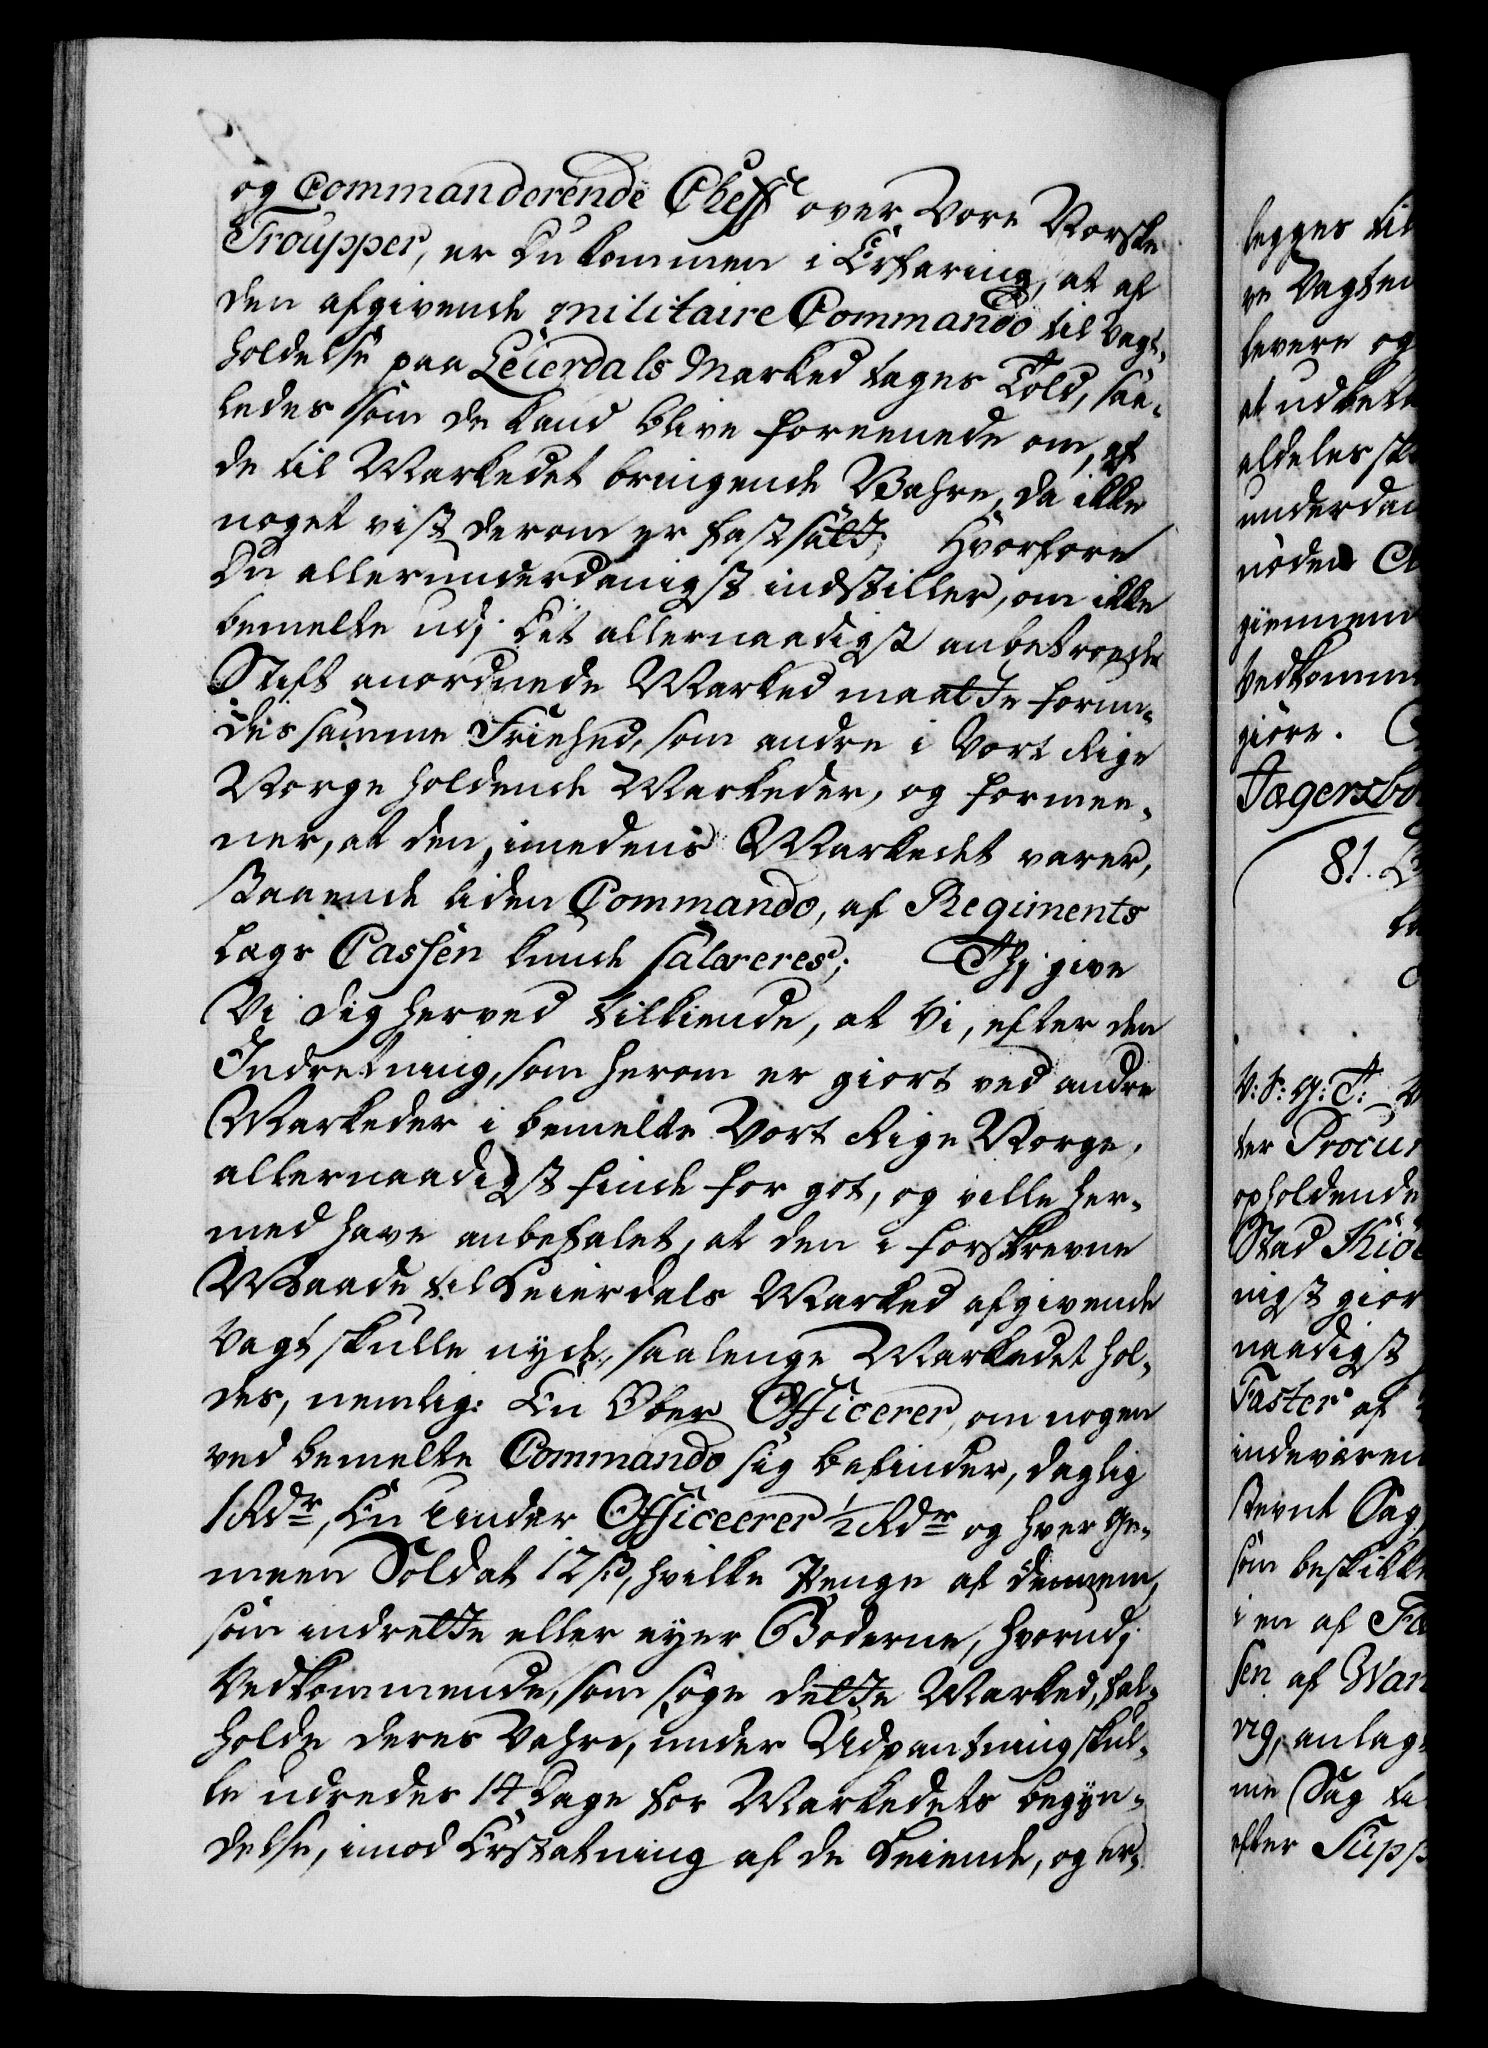 og Commanderende Cheff over Vore Norske
Troupper, er du kommen i Erfaring, at af
den afgivende militaire Commando til Vagt-
holdelse paa Leierdals Marked tages Told, saa-
ledes som de kand blive foreenede om, af
de til Markedet bringende Vahre, da ikke
noget vist derom er fastsatt; Hvorfore
du allerunderdanigst indstiller, om ikke
bemelte udj det allernaadigst anbetroede
Stift anordnede Marked maatte forun-
des samme Friehed, som andre i Vort Rige
Norge holdende Markeder, og formee-
ner, at den, imedens Markedet varer,
staaende liden Commando, af Regiments
Lags Cassen kunde salareres; Thj give
Vi dig herved tilkiende, at Vi, efter den
Indretning, som herom er giort ved andre
Markeder i bemelte Vort Rige Norge,
allernaadigst finde for got, og ville her-
med have anbefalet, at den i forskrevne
Maade til Leierdals Marked afgivende
Vagt skulle nyde, saalenge Markedet hol-
des, nemlig: En Ober Officerer, om nogen
ved bemelte Commando sig befinder, daglig
1 Rdr, En Under Officeerer ½ Rdr og hver Ge-
meen Soldat 12 s, hvilke Penge af dennem,
som indrette eller eyer Boderne, hvorudj
Vedkommende, som søge dette Marked, fal-
holde deres Vahre, under Udpantning skul-
le udredes 14 Dage for Markedets begyn-
delse, imod Erstatning af de Leiende, og er-
legges til
ve Vagten
levere og
at udbeta
aldeles sk
underdan
nøden Co
giennem
Vedkomm
giøre.
Jægersbo
81.
V: S: G: T:
ter Procur
opholdende
Stad Kiøb
nigst gior
naadigst
Faster af
indeværen
stevnt Sag,
som beskikke
i en af Fæ
sen af War
vig, anlag
me Sag
efter Supp